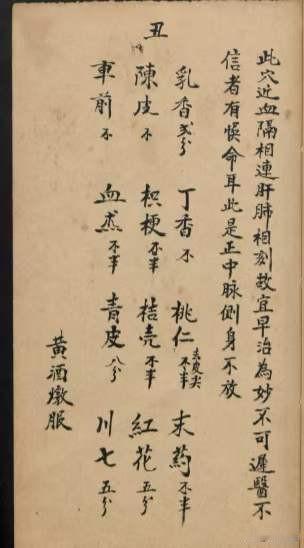 此穴近血隔相連肝肺相刻故宜早治為妙不可遲醫不
信者有悞命耳此是正中脉側身不放
丑
乳香弍分 丁香不 桃仁去皮尖不半 末药不半
陳皮不 枳梗不半 桔壳不半 紅花五分
車前不 血杰不半 青皮八分 川七五分
黄酒燉服